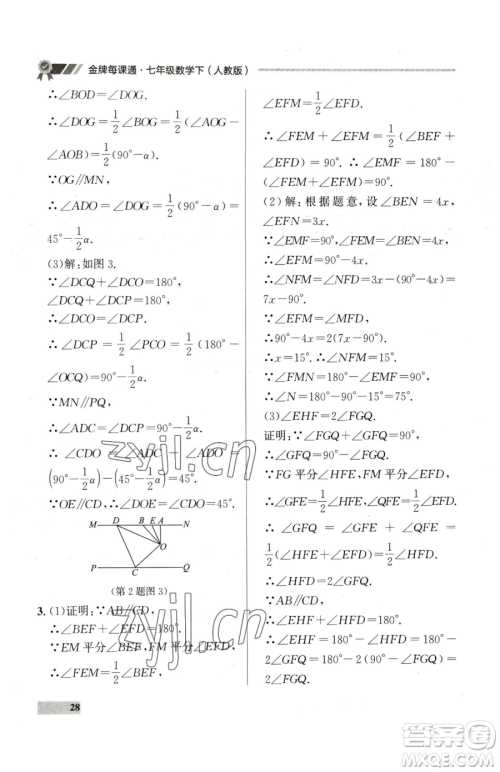 金牌每课通·七年级数学下（人教版）
∴∠BOD=∠DOG.
∴∠DOG=1/2∠BOG=1/2(∠AOG-
∠AOB)=1/2(90°-α).
∵OG∥MN,
∴∠ADO=∠DOG=1/2(90°-α)=
45°-1/2α.
(3)解:如图3.
∵∠DCQ+∠DCO=180°,
∠DCQ+∠DCP=180°,
∴∠DCP=1/2∠PCO=1/2(180°-
∠OCQ)=90°-1/2α.
∵MN∥PQ,
∴∠ADC=∠DCP=90°-1/2α.
∴∠CDO=∠ADC-∠ADO=
(90°-1/2α)-(45°-1/2α)=45°.
∵OE∥CD,∴∠DOE=∠CDO=45°.
M D B E A N
O
P C Q
(第2题图3)
3. (1)证明:∵AB∥CD,
∴∠BEF+∠EFD=180°.
∵EM平分∠BEF,FM平分∠EFD,
∴∠FEM=1/2∠BEF,
28
∠EFM=1/2∠EFD.
∴∠FEM+∠EFM=1/2(∠BEF+
∠EFD)=90°.∴∠EMF=180°-
(∠FEM+∠EFM)=90°.
(2)解:根据题意,设∠BEN=4x,
∠EFN=x.
∵∠EMF=90°,∴∠MEF=90°-4x.
∴∠NFM=∠DFM=2x.
∴90°-4x=2(90°-4x)-x.
∴x=15°.∴∠NFM=15°.
∵∠FMN=180°-∠EMF=90°,
∴∠N=180°-90°-15°=75°.
(3)∠EHF=2∠FGQ.
证明:∵∠FGQ+∠GFQ=90°,
∴∠GFQ=90°-∠FGQ.
∵FG平分∠HFE,FM平分∠EFD,
∴∠GFE=1/2∠HFE,∠QFE=
1/2∠EFD.
∴∠GFQ=∠GFE+∠QFE=
1/2(∠HFE+∠EFD)=1/2∠HFD.
∴∠HFD=2∠GFQ.
∵AB∥CD,
∴∠EHF+∠HFD=180°.
∴∠EHF=180°-∠HFD=180°-
2∠GFQ=180°-2(90°-∠FGQ)=
2∠FGQ.
zyjl.cn
zyjl.cn